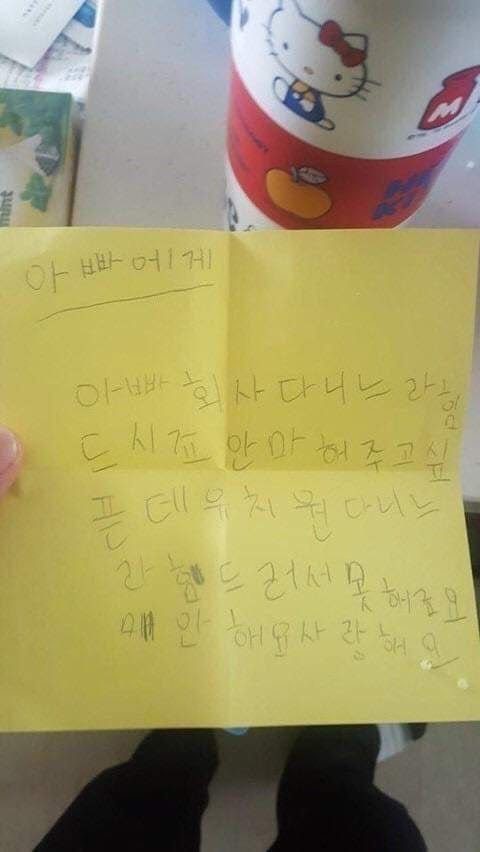 아빠에게
아빠 회사 다니느라힘
드시죠 안마 해주고싶
픈데 유치원 다니느
라 힘드러서 못해료요
미안해요사랑해요
mint
M